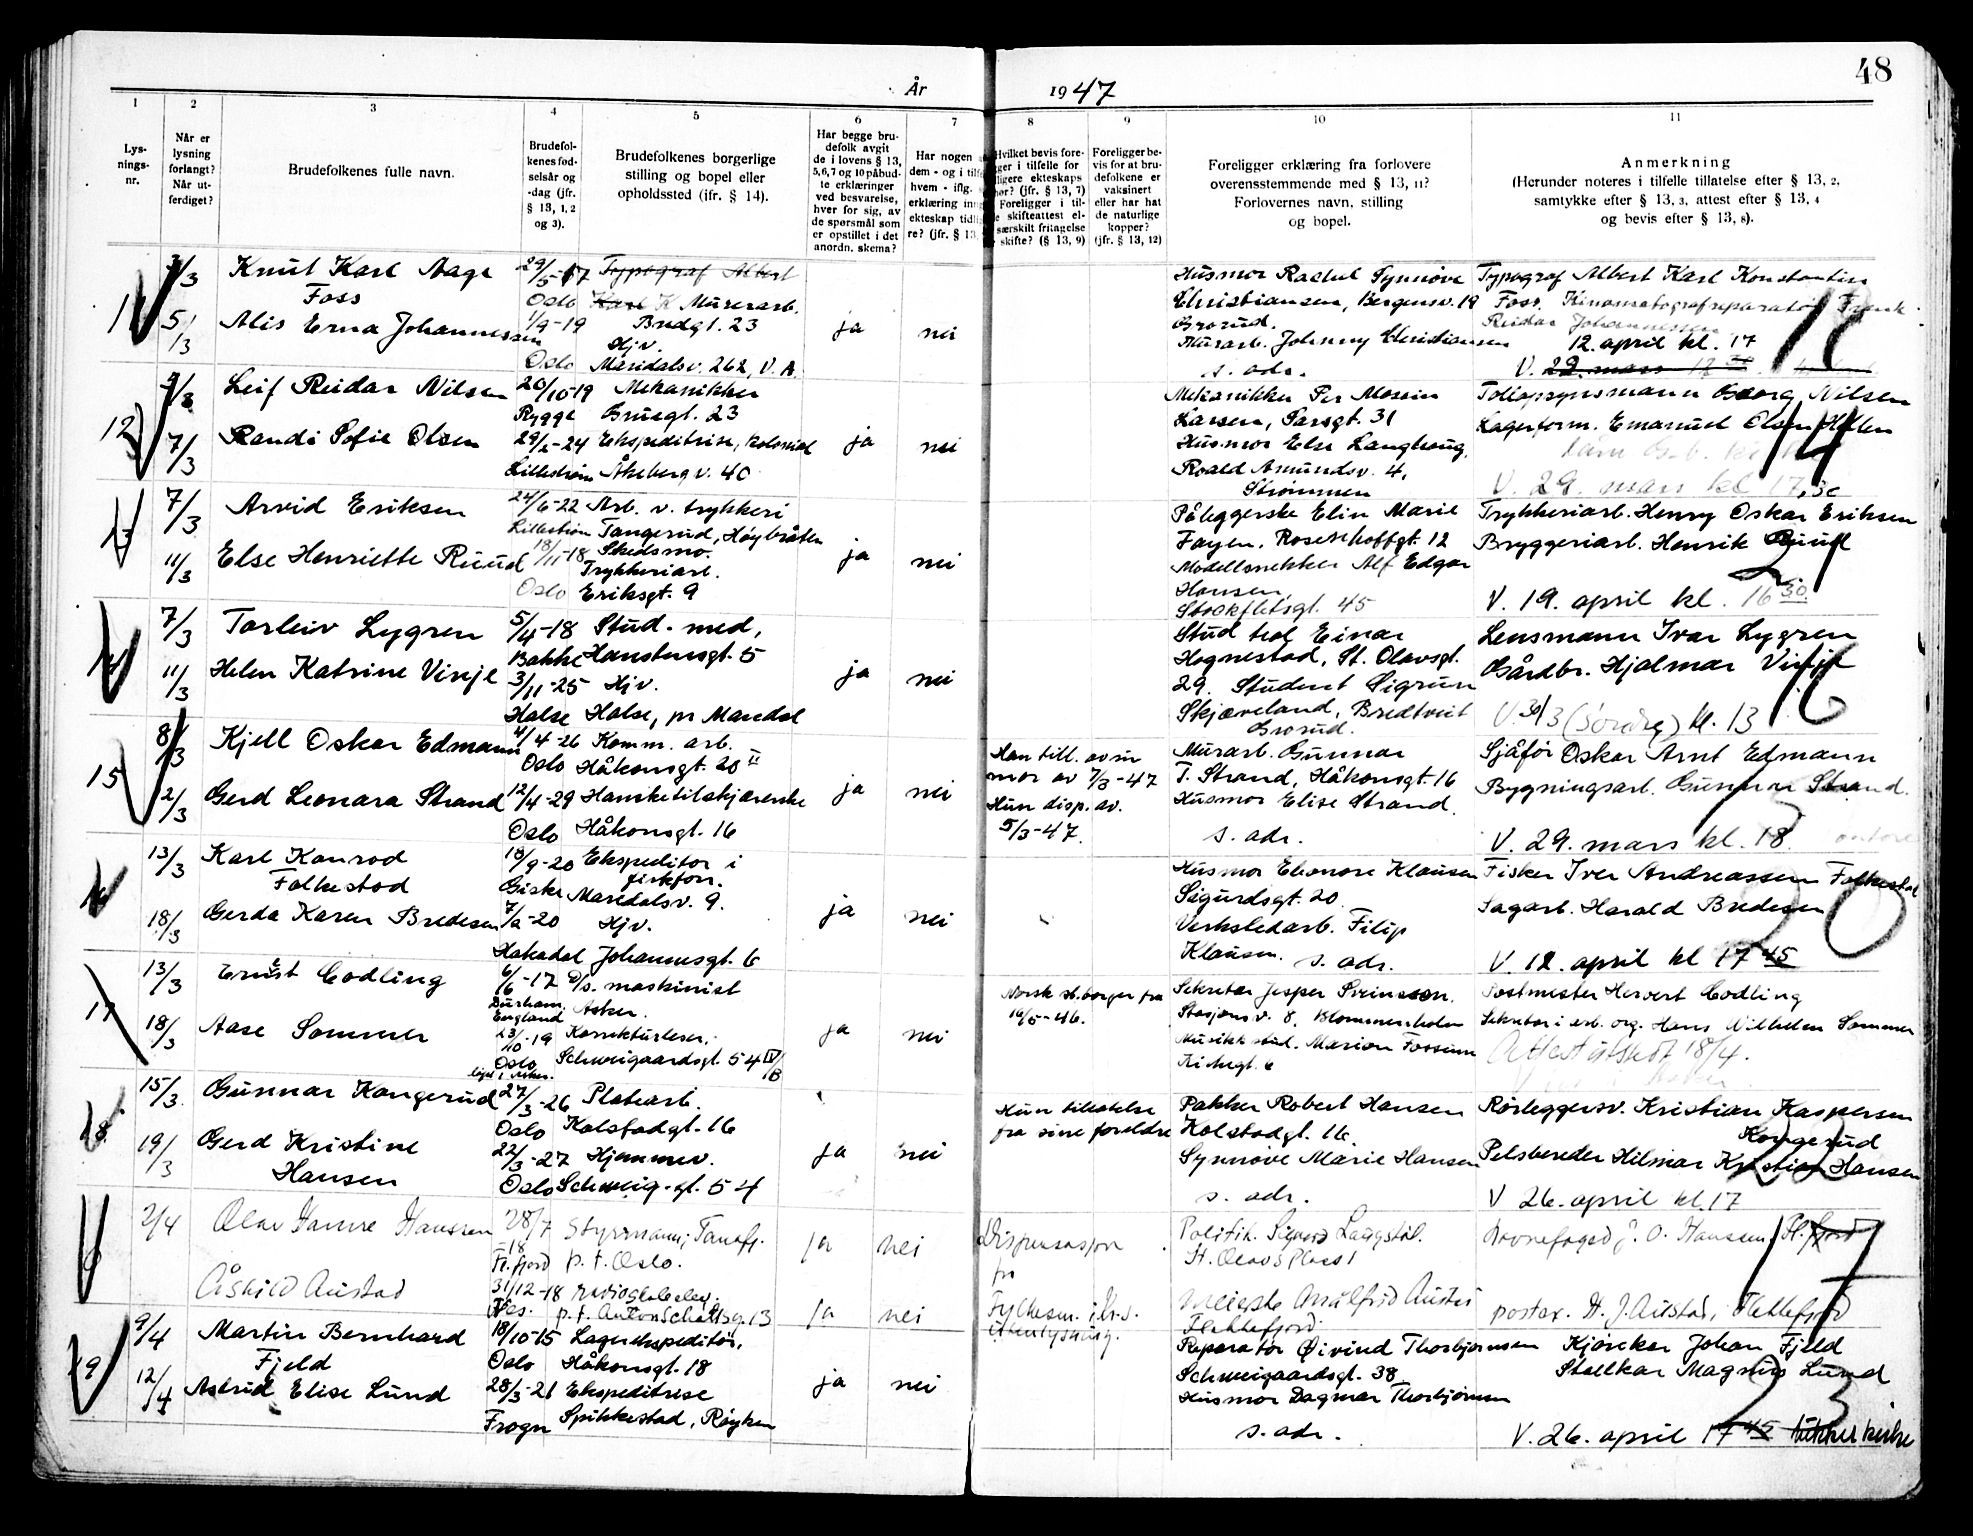 48
År 1947
1 2 3 4 5 6 7 8 9 10 11
Lys-
nings-
nr.
Når er
lysning
forlangt?
Når ut-
ferdiget?
Brudefolkenes fulle navn.
Brudefol-
kenes fød-
selsår og
-dag (jfr.
§ 13, 1, 2
og 3).
Brudefolkenes borgerlige
stilling og bopel eller
opholdssted (ifr. § 14).
Har begge bru-
defolk avgit
de i lovens § 13,
5, 6, 7 og 10 påbud-
te erklæringer
ved besvarelse,
hver for sig, av
de spørsmål som
er opstillet i det
anordn. skema?
Har nogen
dem - og i tilf
hvem - iflg.
erklæring inn
ekteskap tidl
re? (jfr. § 13,
Hvilket bevis fore-
ger i tilfelle for
ligere ekteskaps
hør? (jfr. § 13, 7)
Foreligger i til-
e skifteattest el-
særskilt fritagelse
skifte? (§ 13, 9)
Foreligger be-
vis for at bru-
defolkene er
vaksinert
eller har hat
de naturlige
kopper?
(jfr. § 13, 12)
Foreligger erklæring fra forlovere
overensstemmende med § 13, 11?
Forlovernes navn, stilling
og bopel.
Anmerkning
(Herunder noteres i tilfelle tillatelse efter § 13, 2,
samtykke efter § 13, 3, attest efter § 13, 4
og bevis efter § 13, 8).
11
/3
5/3
Knut Karl Aage
Foss
Alis Erna Johannessen
29/5-17
Oslo
1/9-19
Oslo
Typograf Albert
Karl K Murerarb.
Bredgt. 23
Hjv.
Maridalsv. 262, V. A.
ja
nei
Husmor Rachel Synnøve
Christiansen, Bergensv. 19
Grorud.
Murarb. Johnny Christiansen
s. adr.
Typograf Albert Karl Konstantin
Foss. Kinomatografreparatør Frank
Reidar Johannessen
12. april kl. 17
V. 29. mars 17
12
7/3
Leif Reidar Nilsen
Randi Sofie Olsen
20/10-19
Rygge
29/2-24
Lillestrøm
Mekanikker
Bruegt. 23
Ekspeditrise, kolonial
Åkeberg v. 40
ja
nei
Mekanikker Per Mossin
Larsen, Sarsgt. 31
Husmor Else Langhaug,
Roald Amundsv. 4,
Strømmen
Tollopsynsmann Georg Nilsen
Lagerform. Emanuel Olsen
V. 29. mars kl 17.30
13
7/3
11/3
Arvid Eriksen
Else Henriette Ruud
24/6-22
Lillestrøm
18/11-18
Oslo
Arb. v. trykkeri
Tangerud, Høybråten
Skedsmo.
Trykkeriarb.
Eriksgt. 9
ja
nei
Påleggerske Elin Marie
Fayen, Rosenhoffgt. 12
Modellsnekker Alf Edgar
Hansen,
Stockfletsgt. 45
Trykkeriarb. Henry Oskar Eriksen
Bryggeriarb. Henrik Ruud
21
V. 19. april kl. 16 30
14
7/3
11/3
Torleiv Lygren
Helen Katrine Vinje
5/4-18
Bakke
3/11-25
Halse
Stud. med,
Hanstensgt. 5
Hjv.
Halse, pr Mandal
ja
nei
Stud teol Einar
Hognestad, St. Olavsgt.
29. Student Sigrun
Skjæveland, Bredtveit
Grorud.
Lensmann Ivar Lygren
Gårdbr. Hjalmar Vinje
16
V 30/3 (Søndre) kl. 13
15
8/3
2/3
Kjell Oskar Edmann
Gerd Leonara Strand
4/4-26
Oslo
12/4-29
Oslo
Komm. arb.
Håkonsgt. 20 II
Hansketilskjærerske
Håkonsgt. 16
ja
nei
Han till. av sin
mor av 7/3-47
Hun disp. av.
5/3-47.
Murarb. Gunnar
T. Strand, Håkonsgt. 16
Husmor Elise Strand.
s. adr.
Sjåfør Oskar Arnt Edmann
Bygningsarb. Gunnar Strand.
V. 29. mars kl. 18
16
13/3
18/3
Karl Konrad
Folkestad
Gerda Karen Bredesen
18/9-20
Giske
7/2-20
Hakadal
Ekspeditør i
fiskforr.
Maridalsv. 9.
Hjv.
Johannesgt. 6
ja
nei
Husmor Elenore Klausen
Sigurdsgt. 20.
Verkstedarb. Filip
Klausen. s. adr.
Fisker Iver Andreassen Folkestad
Sagarb. Harald Bredesen
20
V. 12. april kl 17 45
17
13/3
18/3
Ernst Codling
Aase Sommer
6/6-17
Durham,
England
23/10-19
Oslo
D/s. maskinist
Asker.
Korrekturleser.
Schweigaardsgt. 54 IV/B
ja
nei
Norsk st.borger fra
10/5-46.
Sekretær Jesper Sveinsson.
Stasjonsv. 8, Blommenholm
Musikk stud. Marion Fossum
Kirkegt. 6
Postmester Hervert Codling
Sekretær i arb. org. Hans Wilhelm Sommer
Attest utstedt 18/4.
18
15/3
19/3
Gunnar Kongerud
Gerd Kristine
Hansen
27/3-26
Oslo
22/3-27
Oslo
Platearb.
Kolstadgt. 16
Hjemmev.
Schweig.gt. 54
ja
nei
Hun tillatelse
fra sine foreldre
Pakker Robert Hansen
Kolstadgt. 16.
Synnøve Marie Hansen
s. adr.
Rørleggersv. Kristian Kaspersen
Kongerud
Pelsbereder Hilmar Kristian Hansen
22
V 26. april kl. 17
2/4
Olav Hamre Hanssen
Åshild Austad
28/7
-18
Fl.fjord
31/12-18
Styrmann, Tanafj.
p. t. Oslo.
p.t. Anton Schøttsg. 13
ja
nei
ja
nei
Dispensasjon
fra
Fylkesm.
Politik. Sigurd Laugstøl.
St. Olavs Plass 1
Meierske Anulfrid Austad
Flekkefjord.
Havnefoged J. O. Hanssen, Fl.fjord
17
postex. H. J. Austad, Flekkefjord
19
9/4
12/4
Martin Bernhard
Fjeld
Astrid Elise Lund
18/10-15
Oslo
28/3-21
Frogn
Lagerekspeditør,
Håkonsgt. 18
Ekspeditrise
Spikkestad, Røyken
ja
nei
Reparatør Øivind Thorbjørnsen
Schweigaardsgt. 38
Husmor Dagmar Thorbjørnsen
s. adr.
Kjørekar Johan Fjeld
Stallkar Magnus Lund
23
V. 26. april 17 45